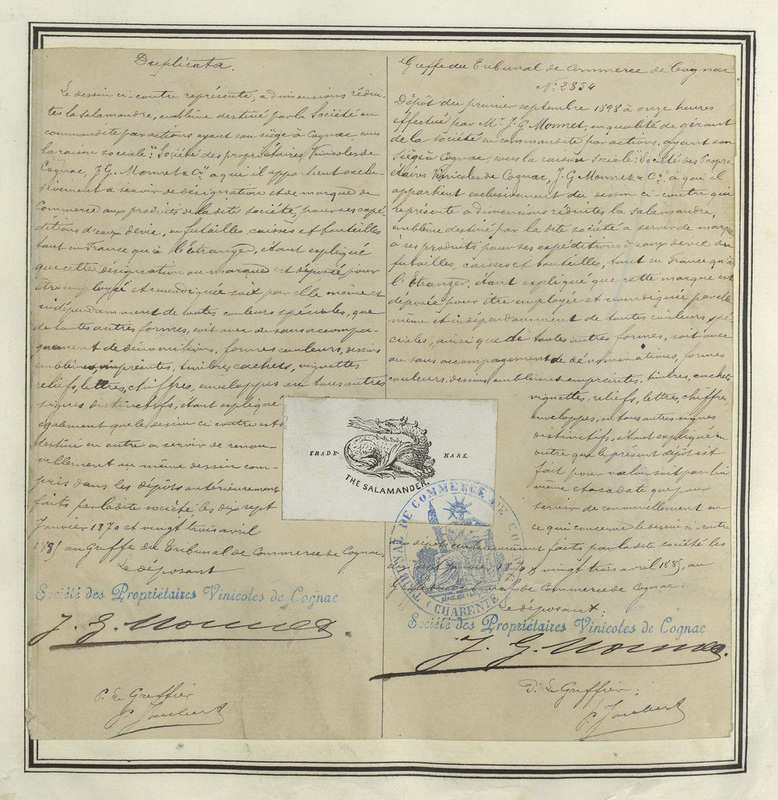 Duplicata.
Le dessin ci-contre représente, à dimensions rédui-
tes la salamandre, emblème destiné par la Société en
commandite par actions ayant son siège à Cognac, sous
la raison sociale: "Société des propriétaires Vinicoles de
Cognac, J. G. Monnet & Cie" à qui il appartient exclu-
sivement à servir de désignation et de marque de
Commerce aux produits de la dite société, pour ses expé-
ditions d'eaux de vie, en futailles, caisses et bouteilles
tant en France qu'à l'Etranger, étant expliqué
que cette désignation ou marque est déposée pour
être employée et revendiquée soit par elle même et
indépendamment de toutes couleurs spéciales, que
de toutes autres formes, soit avec ou sans accompa-
gnement de dénominations, formes couleurs, dessins
emblèmes, empreintes, timbres cachets, vignettes
reliefs, lettres, chiffres, enveloppes ou tous autres
signes distinctifs, étant expliqué
également que le dessin ci contre est
destiné en outre à servir de renou-
vellement au même dessin com-
pris dans les dépôts antérieurement
faits par la dite société les dix sept
Janvier 1870 et vingt trois avril
1881 au Greffe du Tribunal de Commerce de Cognac
Le déposant
Société des Propriétaires Vinicoles de Cognac
J. G. Monnet
P. Le Greffier
P. Joubert
Greffe du Tribunal de Commerce de Cognac
N° 2354
Dépôt du premier septembre 1898 à onze heures
effectué par Mr. J. G. Monnet, en qualité de gérant
de la Société en commandite par actions, ayant son
Siège à Cognac, sous la raison Sociale: Société des Propri-
étaires Vinicoles de Cognac, J. G. Monnet & Cie, à qui il
appartient exclusivement du dessin ci-contre qui
représente à dimensions réduites la Salamandre,
emblème destiné par la dite société à servir de marque
à ses produits pour ses expéditions d'eaux de vie en
futailles, caisses et bouteilles, tant en France qu'à
l'Etranger, étant expliqué que cette marque est
déposée pour être employée et revendiquée par elle
même et indépendamment de toutes couleurs spé-
ciales, ainsi que de toutes autres formes, soit avec
ou sans accompagnement de dénominations, formes
couleurs, dessins emblèmes empreintes, timbres, cachets
vignettes, reliefs, lettres, chiffres
enveloppes, ou tous autres signes
distinctifs, étant expliqué en
outre que le présent dépôt est
fait pour valoir soit par lui
même et à sa date que pour
servir de renouvellement en
ce qui concerne le dessin ci-contre
dépôts antérieurement faits par la dite société les
Janvier 1870 & vingt trois avril 1881, au
Greffe du Tribunal de Commerce de Cognac.
Le déposant:
Société des Propriétaires Vinicoles de Cognac
J. G. Monnet.
P. Le Greffier:
P. Joubert
TRADE MARK.
THE SALAMANDER.
TRIBUNAL DE COMMERCE DE COGNAC
(CHARENTE)